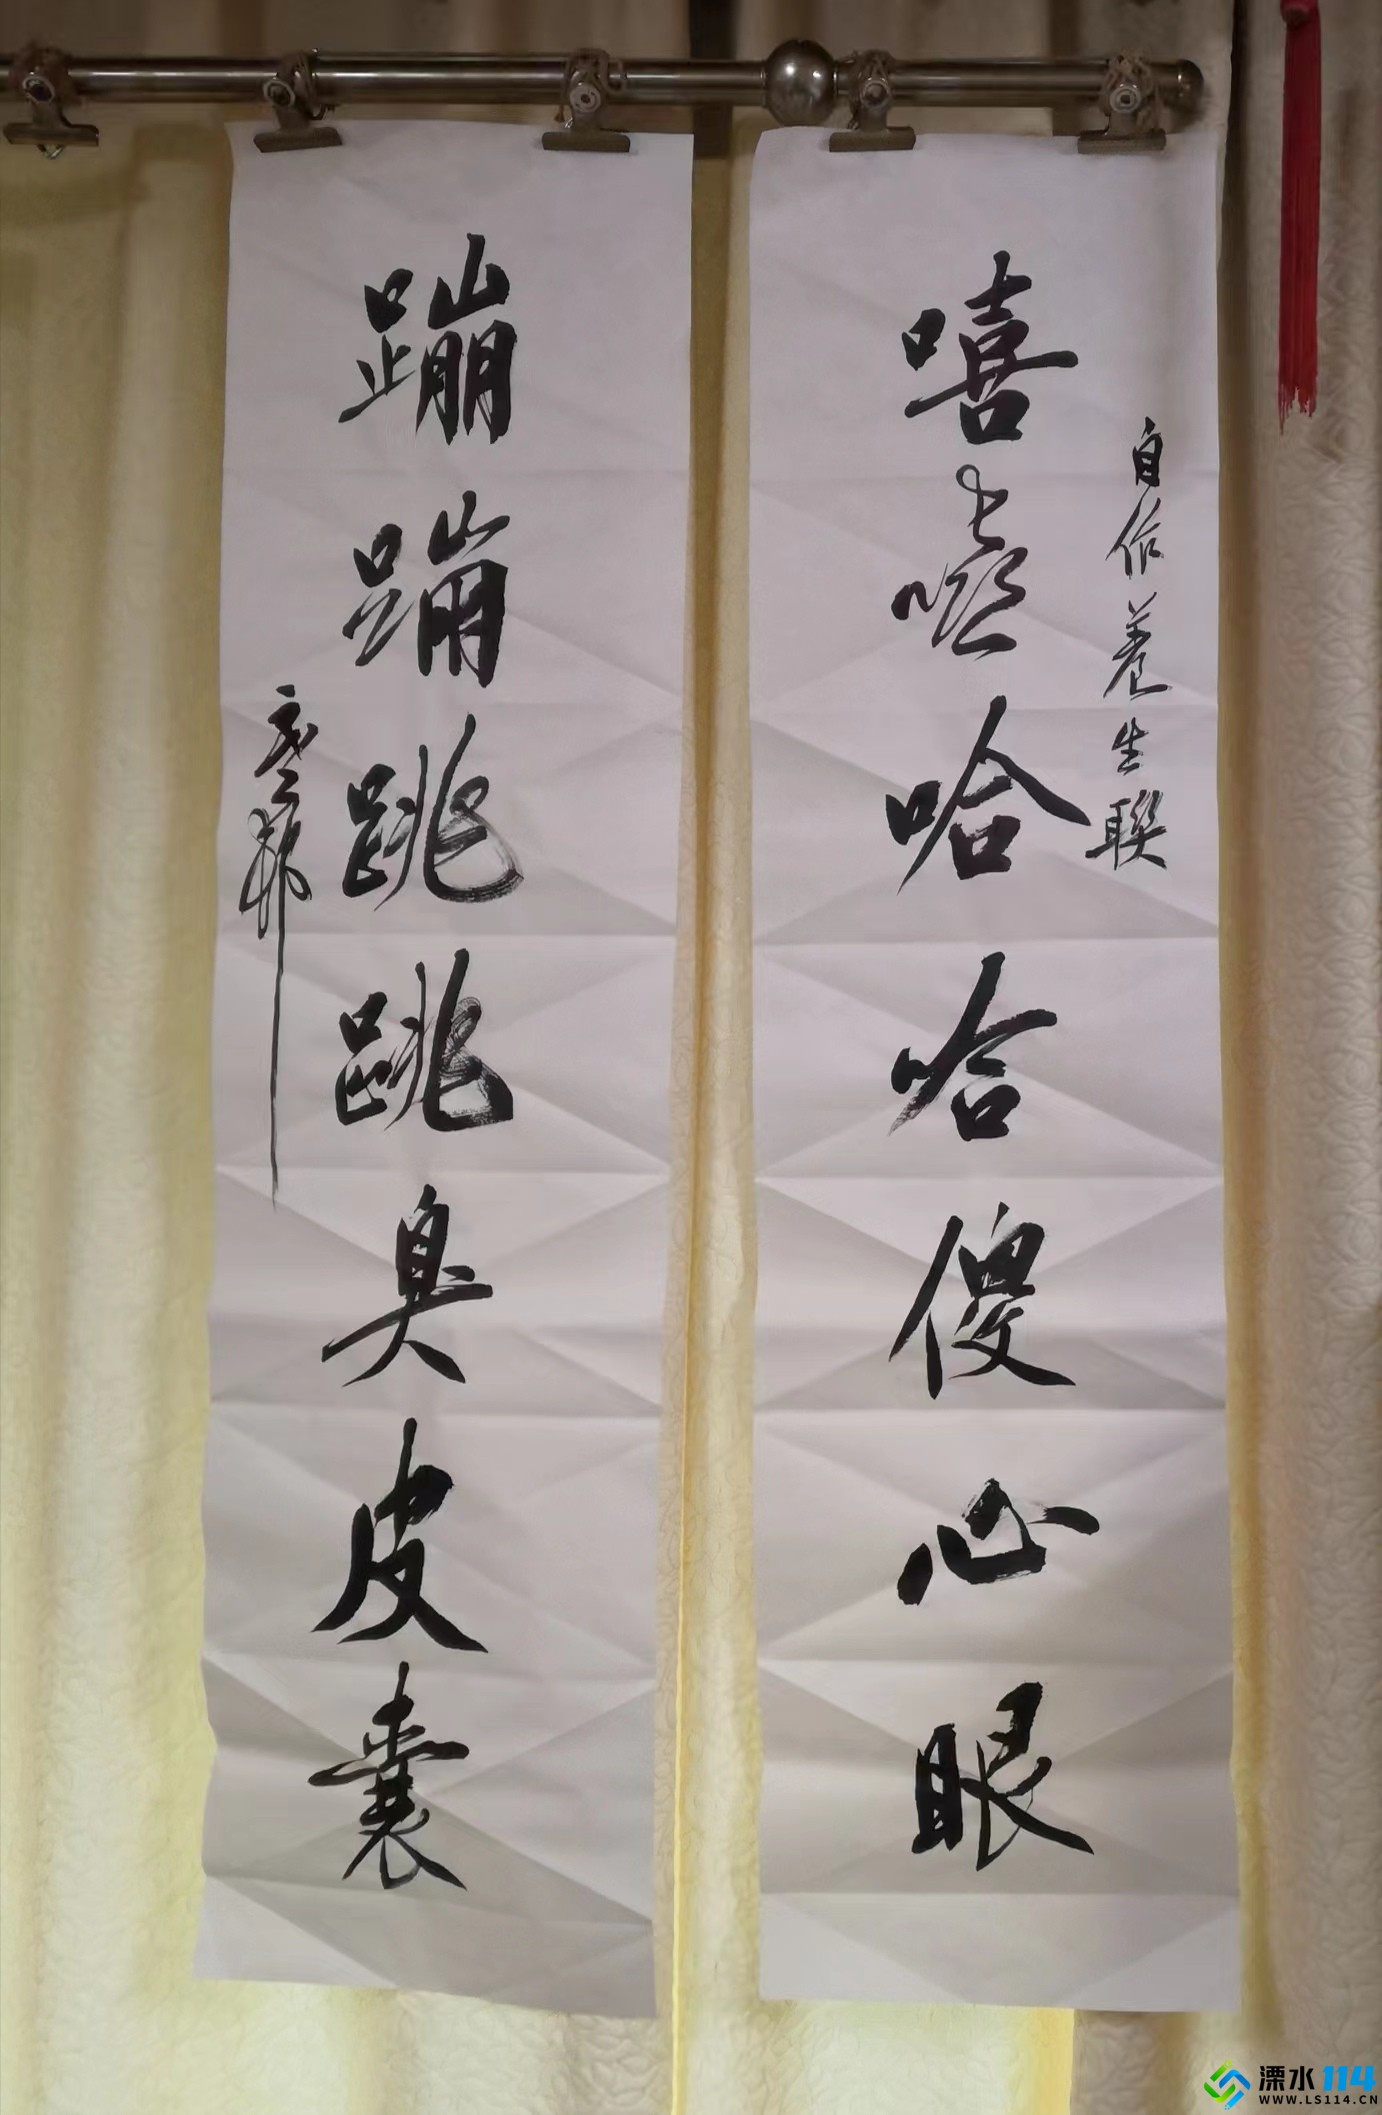 自作养生联
嘻嘻哈哈傻心眼
蹦蹦跳跳臭皮囊
溧水114
WWW.LS114.CN